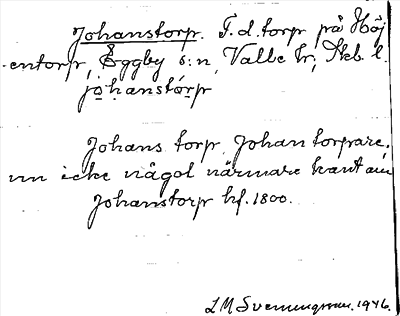 Johanstorp. F.d. torp på Höj
entorp, Eggby s:n, Valle hr, Skb. l.
johanstórp
Johans torp Johan torpare.
nn icke någol närmare kant
Johanstorp hf. 1800.
L M Svenungsson. 1946.